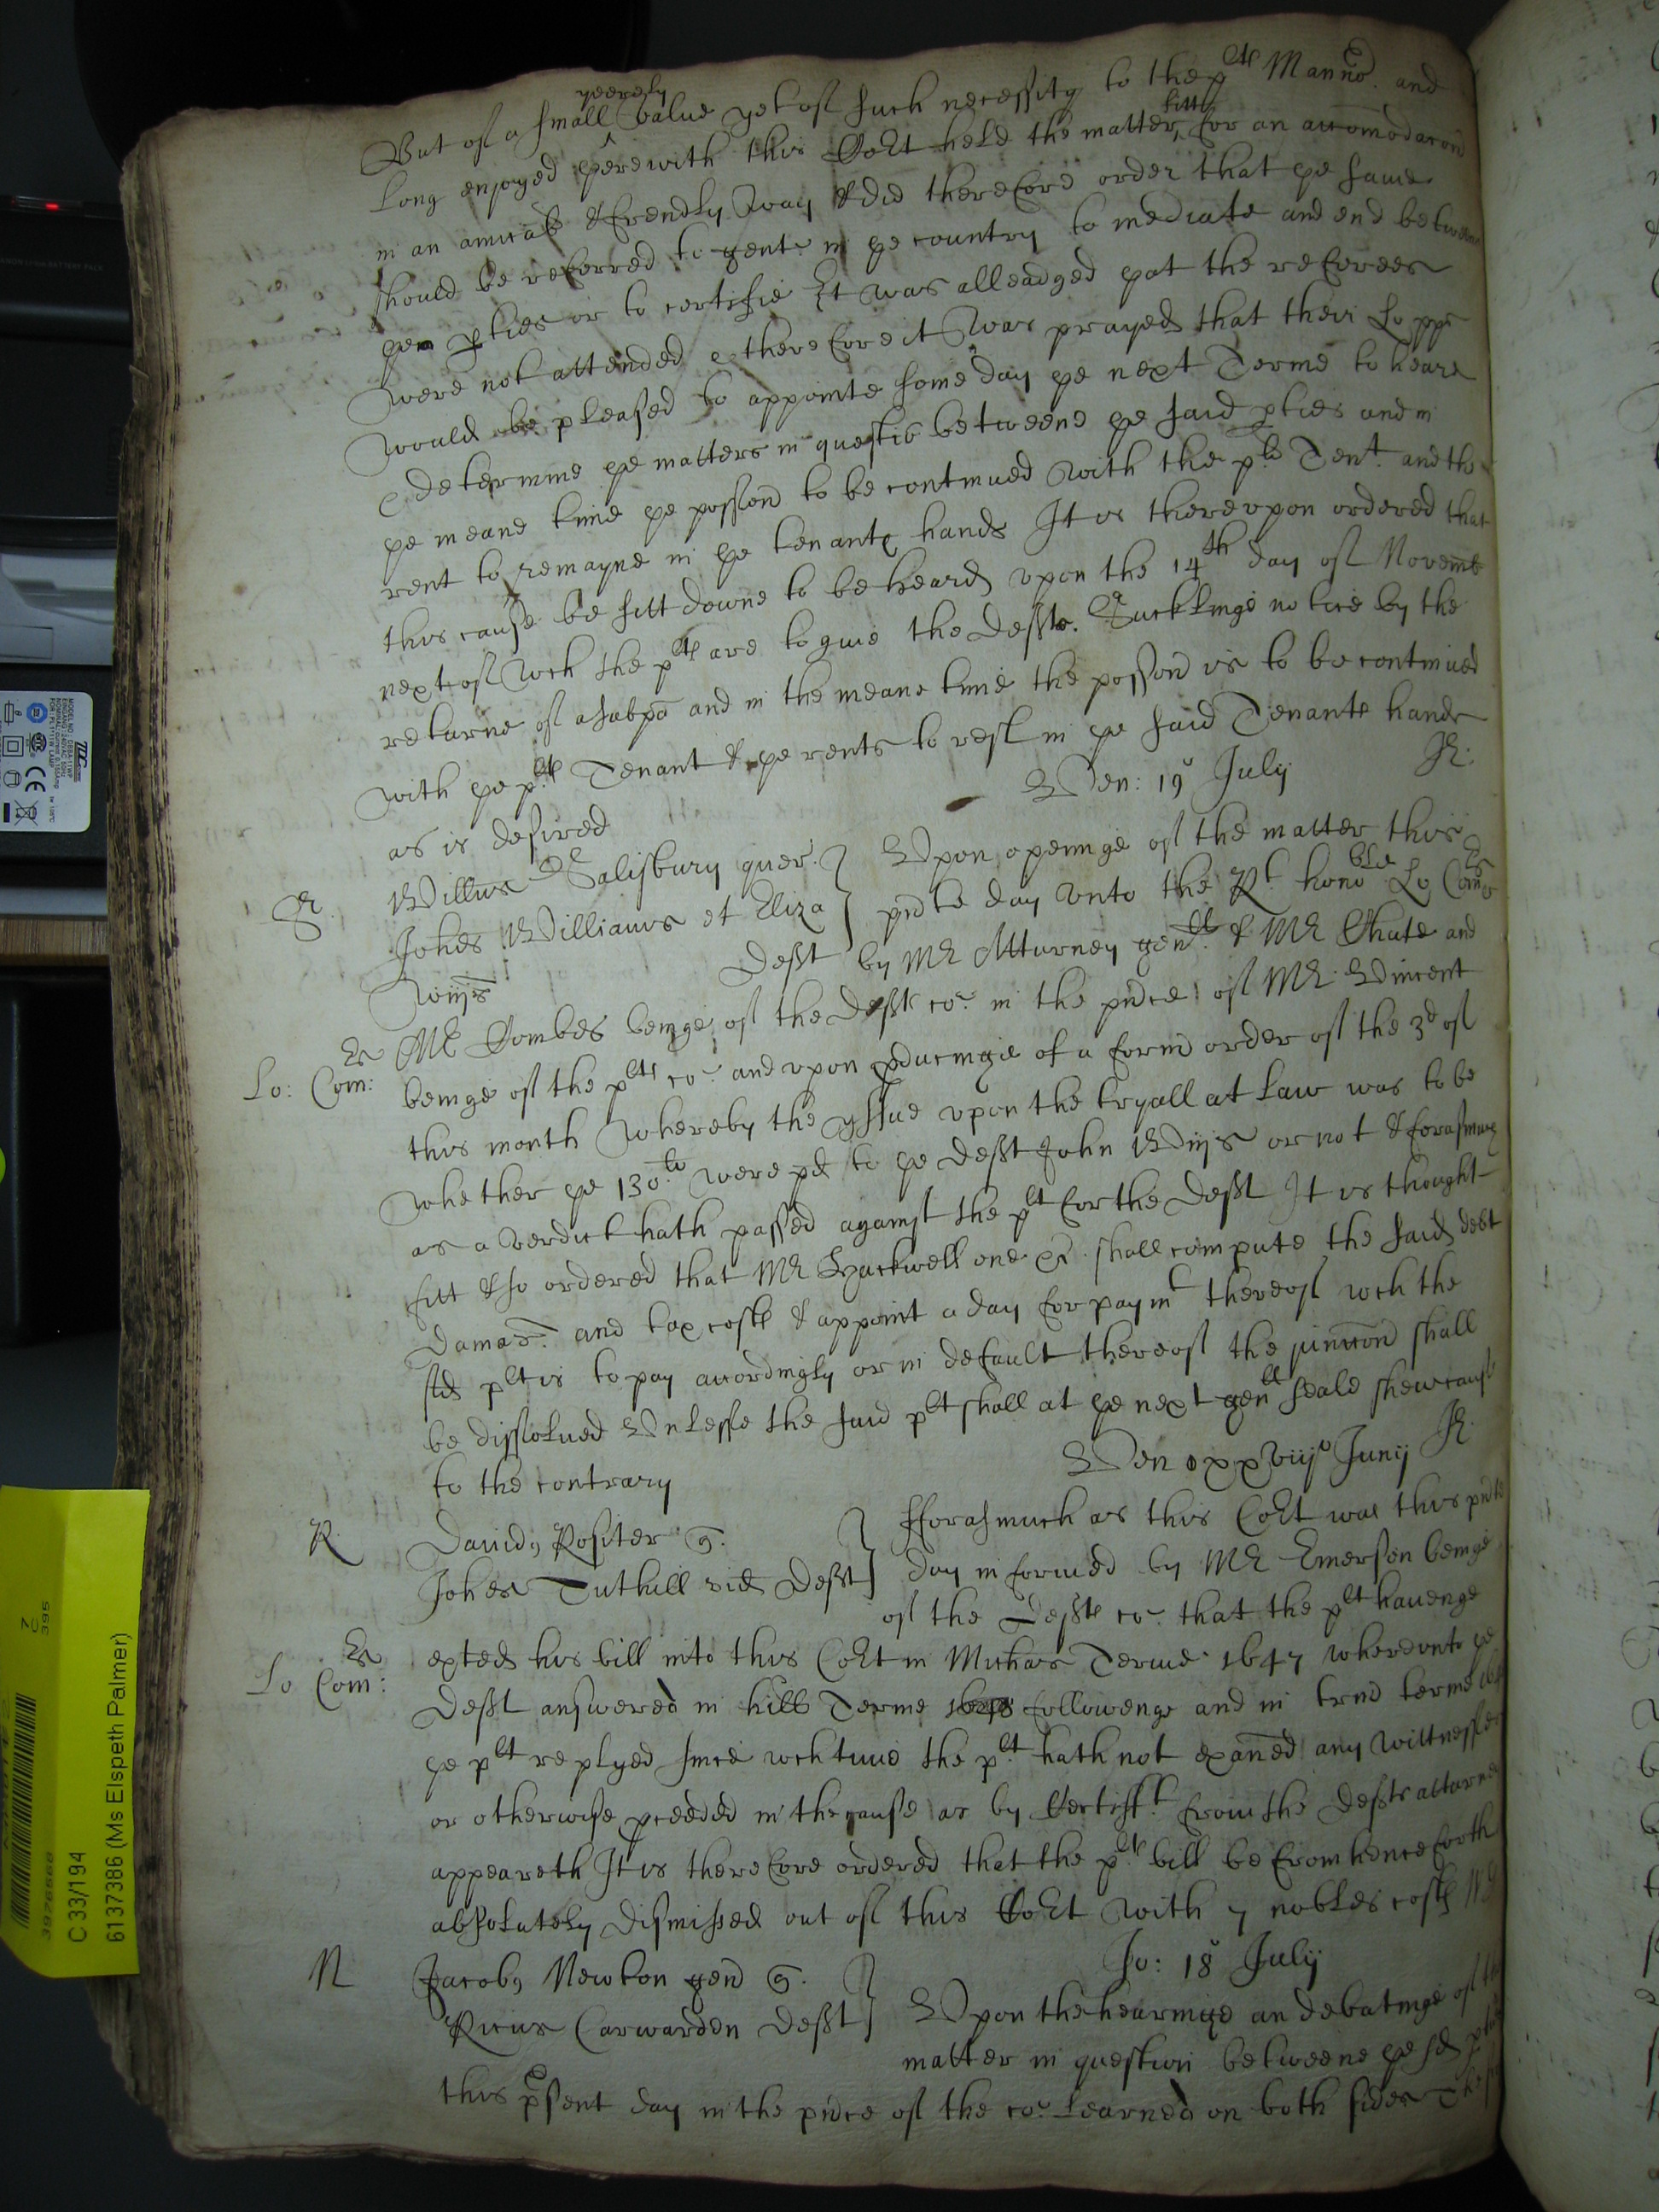 But of a small yeerely value yet of such necessity to the plts Manno.r and
long enjoyed therewith this Co.rt held the matter fitt for an accomodacon
in an amicab & frendly way & did therefore order that ye same
should be referred to gent. in ye country to mediate and end betweene
ye pties or to certifie It was alleadged yat the referees
were not attended & therefore it was prayed that their Lo.pps
would be pleased to appointe some day ye next Terme to heare
& determine ye matters in questio betweene ye said pties and in
ye meane time ye possion to be continued with the plts Ten.t and the
rent to remayne in ye tenants hands It is therevpon ordered that
this cause be sett downe to be heard vpon the 14th day of Novemb
next of wch the plts are to giue the defts. Sucklinge notice by the
returne of a subpa and in the meane time the possion is to be continued
with ye plts Tenant & ye rents to rest in ye said Tenants hands
as is desired
Ven: 19o July
Willus Salisbury quer.
Johes Williams et Eliza
Deft
Vpon openinge of the matter this
pnte day vnto the Rt. hono.ble Lo Com.rs
by Mr Atturney gen.ll & Mr Chute and
Lo: Com:rs
Mr Combes beinge of the Defts co. in the pnce of Mr Vincent
beinge of the plts co. and vpon pducinge of a form order of the 3d of
this month whereby the yssue vpon the tryall at law was to be
whether ye 130.li were pd to ye Deft John or not & forasmuch
as a verdict hath passed against the plt for the Deft It is thought
fitt & so ordered that Mr Hackwell one &c. shall compute the said debt
Damag. and tax costs & appoint a day for paymt thereof wch the
sd plt is to pay accordingly or in default thereof the iniuncon shall
be dissolued Vnlesse the said plt shall at ye next gen.ll seale shew cause
to the contrary
Ven xxviijo Junij
R.
David9 Rositer q.
Johes Tuthill vid Deft
Fforasmuch as this Co.rt was this pnte
day informed by Mr Emerson beinge
of the Defts co. that the plt hauenge
Lo Com:rs
exted his bill into this Co.rt in Michais Terme 1647 wherevnto ye
Deft answered in hill Terme followenge and in trin terme
ye plt replyed since wch time the plt. hath not examed any wittnesses
or otherwise pceeded in the cause as by Certifft. from the Defts atturney
appeareth It is therefore ordered that the plts bill be from henceforth
absolutely Dismissed out of this Co.rt with 7 nobles costs
N
Jo: 18o July
Jacob9 Newton gen q.
Ricus Carwarden Deft
Vpon the hearinge an debatinge of the
matter in question betweene ye sd pties
this psent day in the pnce of the co. learned on both sides
C 33/194
6137386 (Ms Elspeth Palmer)